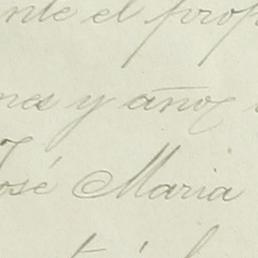 nte el prop
mes y año
José Maria